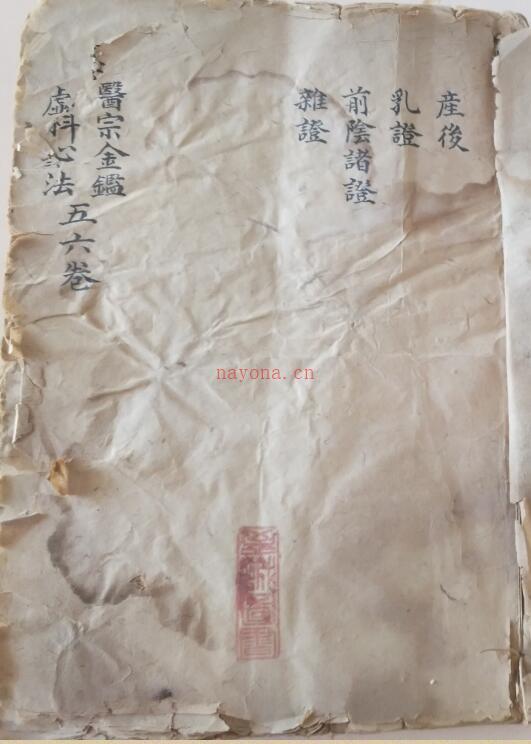 産後
乳證
前陰諸證
雜證
醫宗金鑑
虛科心法
五六卷
nayona.cn